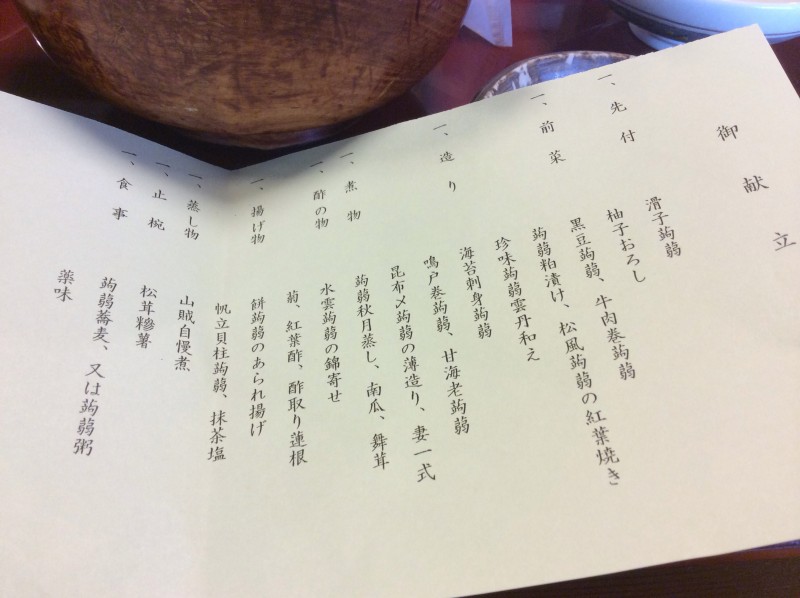 御献立
一、先付
滑子蒟蒻
柚子おろし
一、前菜
黒豆蒟蒻、牛肉巻蒟蒻
蒟蒻粕漬け、松風蒟蒻の紅葉焼き
珍味蒟蒻雲丹和え
一、造り
海苔刺身蒟蒻
鳴戸巻蒟蒻、甘海老蒟蒻
昆布〆蒟蒻の薄造り、妻一式
一、煮物
蒟蒻秋月蒸し、南瓜、舞茸
一、酢の物
水雲蒟蒻の錦寄せ
菊、紅葉酢、酢取り蓮根
一、揚げ物
餅蒟蒻のあられ揚げ
帆立貝柱蒟蒻、抹茶塩
一、蒸し物
山賊自慢煮
一、止椀
松茸糝薯
一、食事
蒟蒻蕎麦、又は蒟蒻粥
薬味